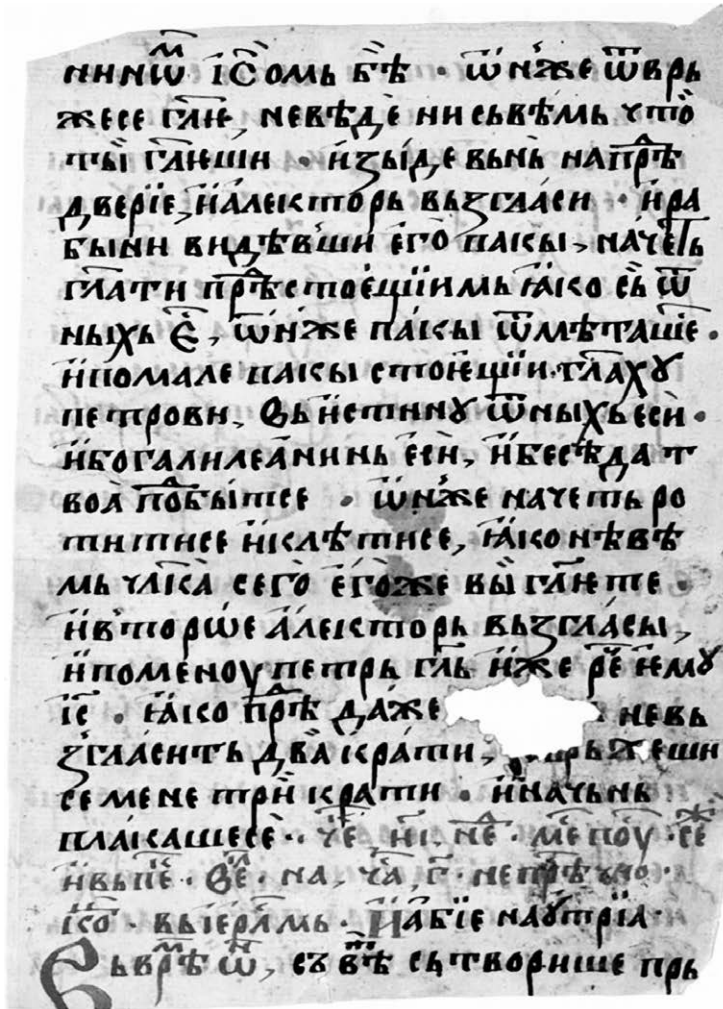 нинѡⷨ҇ і҆с҃омь бѣ҆ · ѡ҆нъ́же ѿврь
жесе гл҃ѥ, невѣдѐ ни сьвѣмь что̀
ты̀ гл҃ѥши · и҆зы́де вьнь напрⷣѣ
дверїе, и҆ алекторь вьзгласи · и҆ ра
быни видѣвши е҆го̀ пакы, начеть
гл҃ати прⷣѣстое́щїимь ꙗ҆ко сь̀ ѿ
ныхь є҆, ѡ҆нъ́же пакы ѿмѣташе ·
и҆ помале пакы стоѥщїи · гл҃ахꙋ
петрови, вьи҆стинꙋ ѿныхь е҆сѝ ·
и҆бо галилеанинь е҆сѝ, и҆ бесѣда т
воа̀ поⷣбытсе · ѡ҆нъ́же начеть ро
титисе и҆ клѣтисе, ꙗ҆ко не́ вѣ
мь чл҃ка̀ сего̀ е҆го́же вы̀ гл҃ѥте ·
и҆ вторѡе а҆лекторь вьзгла́сы,
и҆ поменоу петрь гл҃ь и҆же реⷱ҇ ѥ҆мꙋ
і҆с҃ · ꙗ҆ко прⷣѣ да́же не вь
згла́сить два̀ крати, жеши
се мене трѝ крати · и҆ начьнь
плакашесѐ ·
и҆ вь · на ·
вьіерⷭ҇лмь · И҆ абїе наꙋ҆трїа
сътворише прь